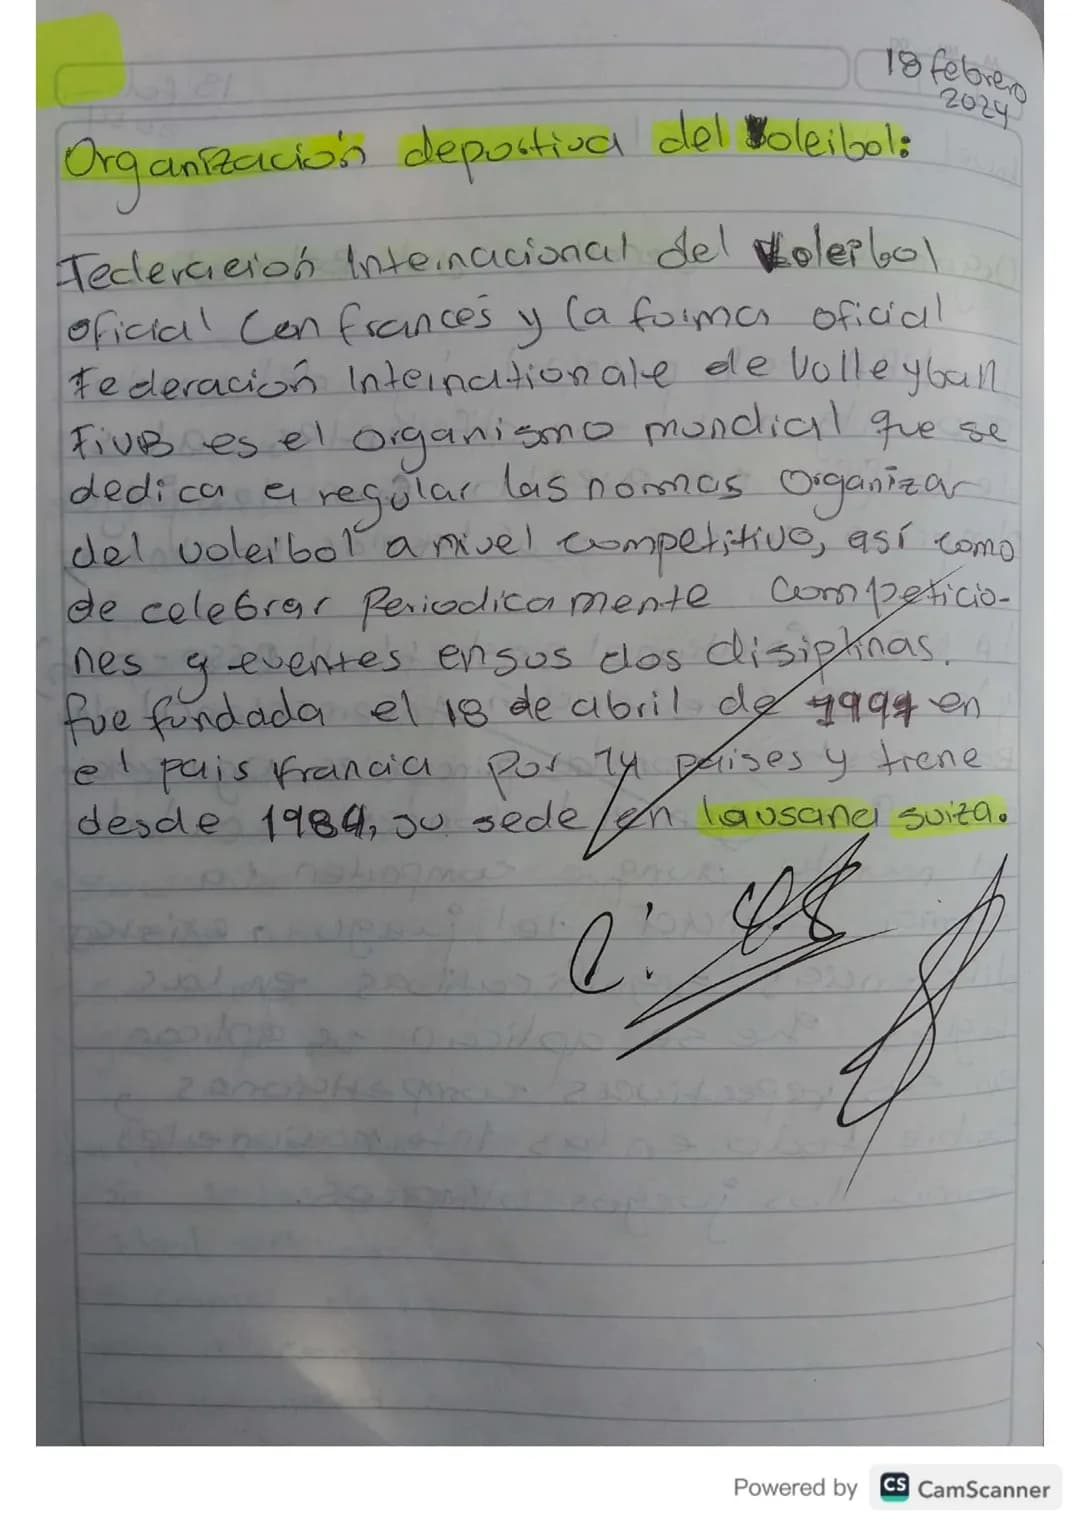 18 febrero
2024
Organización deportiva del Voleibol:
Federación Internacional del Voleibol
oficial Cen francés y la forma oficial
Federación Internationale de Volleyball
FIVB es el organismo mundial que se
dedica a regular las normas Organizar
del voleibol a nivel competitivo, así como
de celebrar Periodicamente Competicio-
nes y eventes en sus dos disiplinas.
fue fundada el 18 de abril de en
el pais francia por 14 paises y tiene
desde 1984, su sede en lausana suiza.
Powered by CS CamScanner